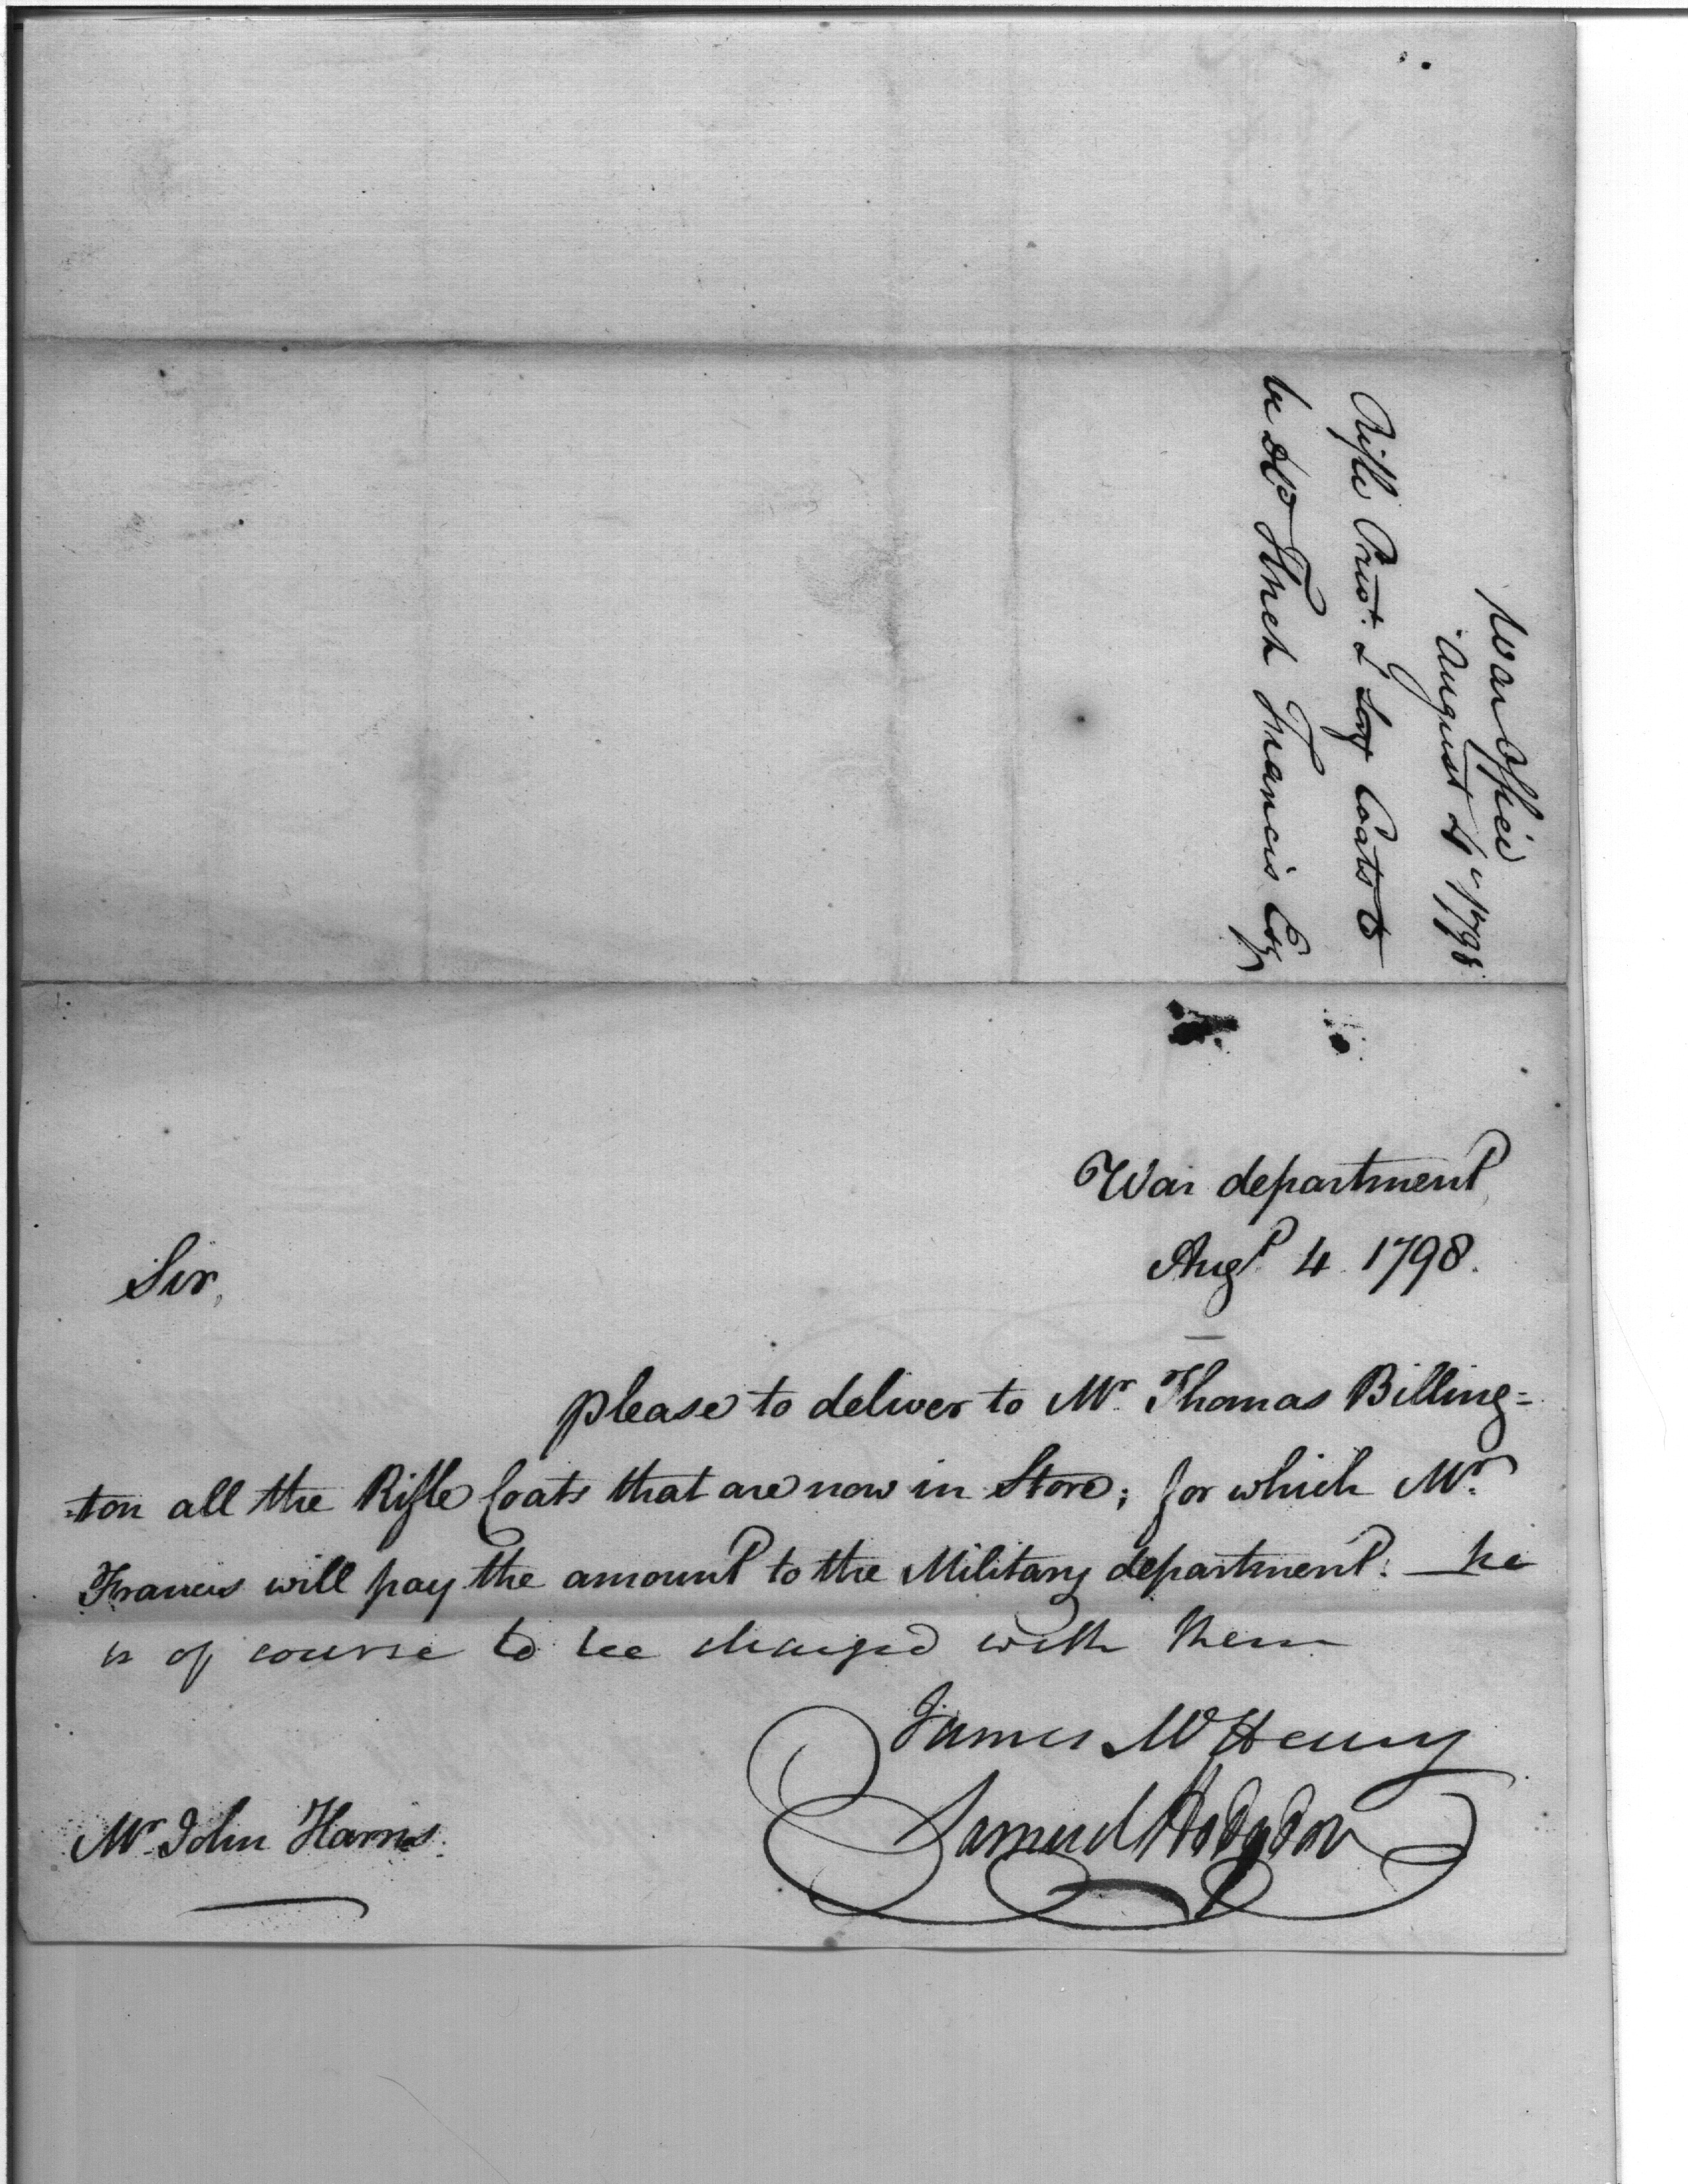 War Office
August 4th 1798
Rifle Privt. & Serjt Coats to
be deld Tench Francis Esq
War department
Augt 4 1798.
Sir,
please to deliver to Mr Thomas Billing=
=ton all the Rifle Coats that are now in Store; for which Mr.
Francis will pay the amount to the Military department. he
is of course to be charged with them
James McHenry
Samuel Hodgdon
Mr John Harris.